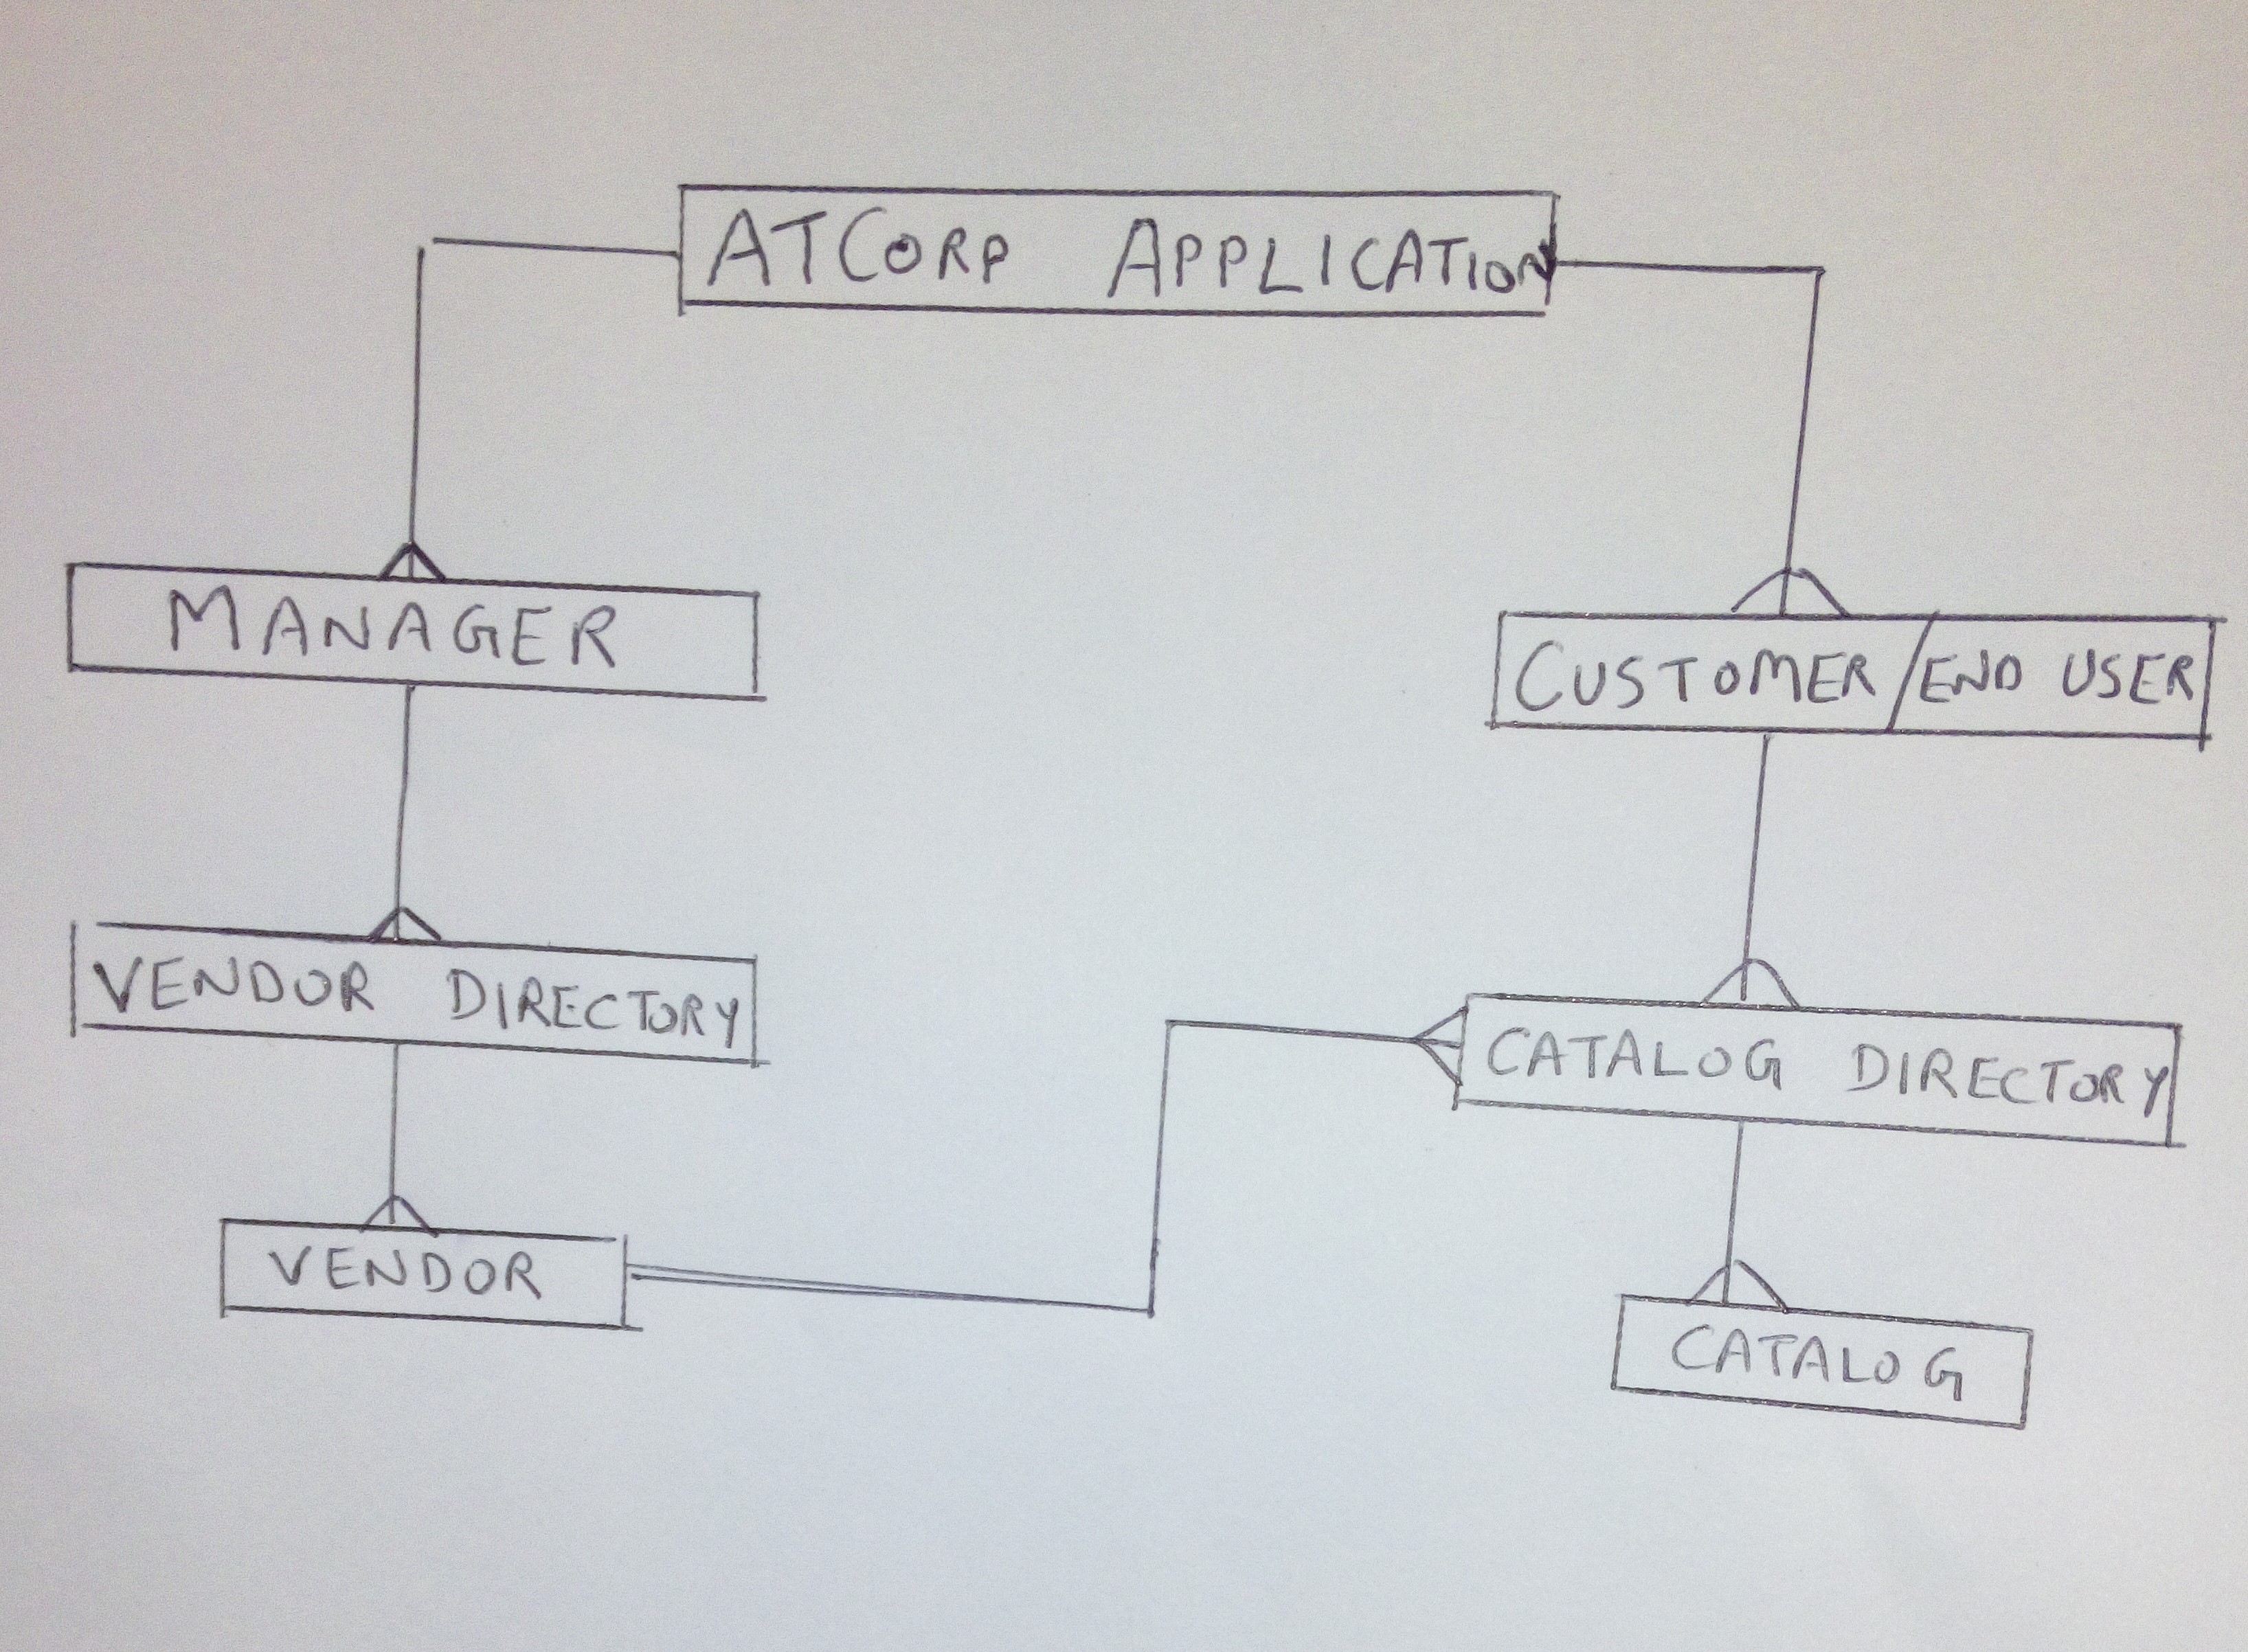 ATCORP APPLICATION
MANAGER
CUSTOMER/END USER
VENDOR DIRECTORY
CATALOG DIRECTORY
VENDOR
CATALOG